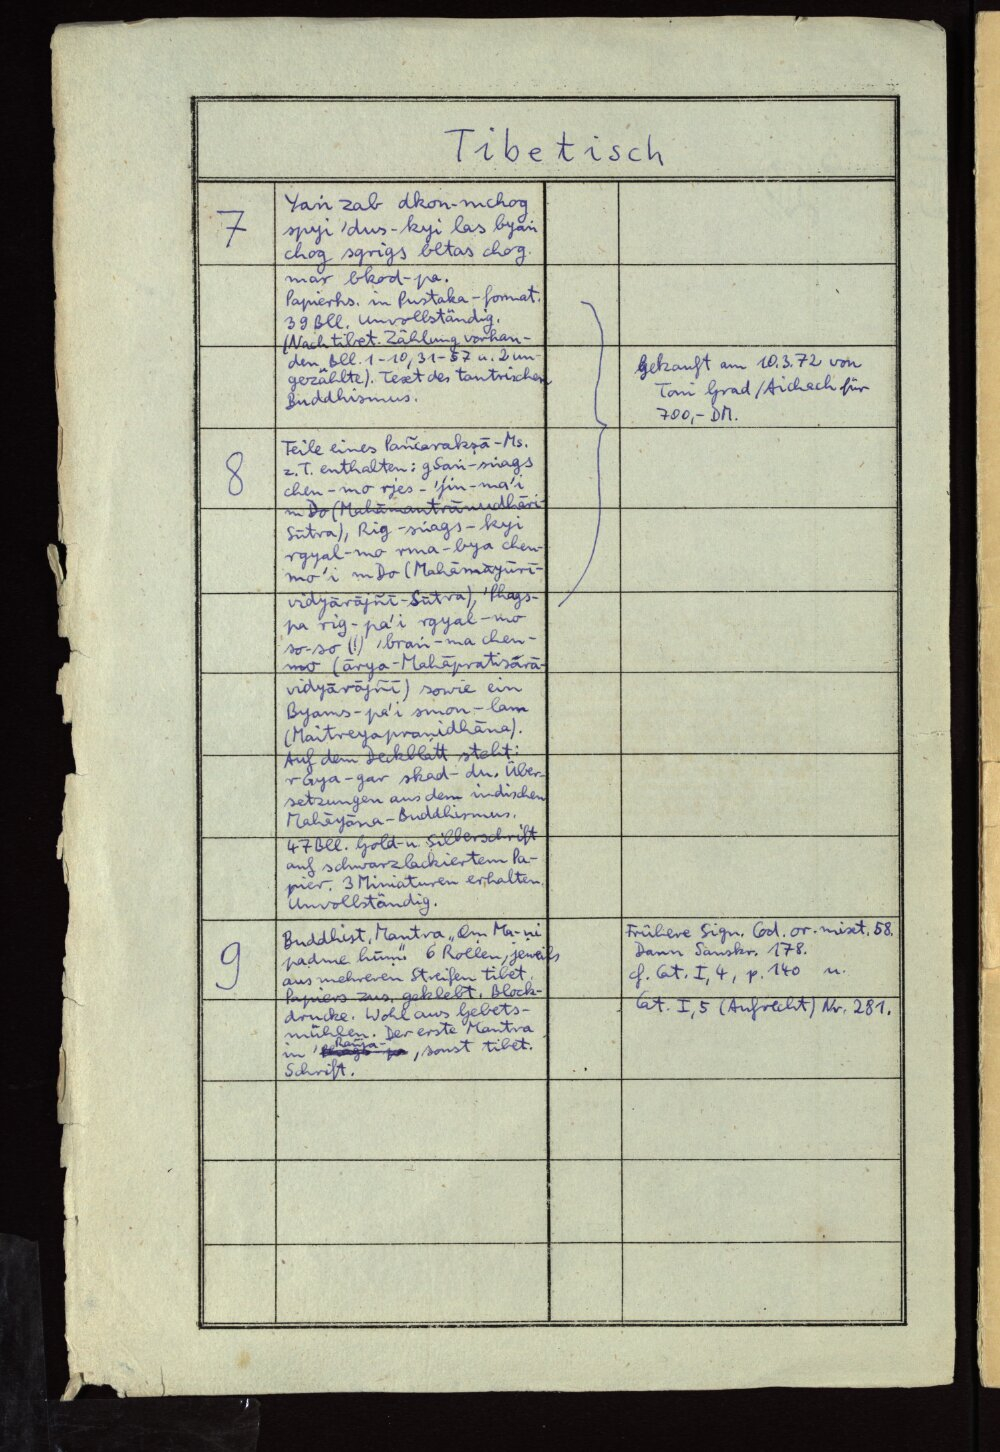 Tibetisch
7
Yaṅ zab dkon-mchog
spyi 'dus-kyi las byaṅ
chog sgrigs bltas chog
mar bkod-pa.
Papierhs. in Pustaka-format.
39 Bll. Unvollständig.
(Nach tibet. Zählung vorhan-
den Bll. 1-10, 31-57 u. 2 un-
gezählte). Text des tantrischen
Buddhismus.
Gekauft am 10.3.72 von
Toni Grad/Aichach für
700,- DM.
8
Teile eines Pañcarakṣā-Ms.
z.T. enthalten: gSaṅ-sṅags
chen-mo rjes-'jin-ma'i
mDo (Mahāmantrānudhāri-
Sūtra), Rig-sṅags-kyi
rgyal-mo rma-bya chen-
mo'i mDo (Mahāmayūrī-
vidyārājñī-Sūtra), 'Phags-
pa rig-pa'i rgyal-mo
so-so (!) 'braṅ-ma chen-
mo (ārya-Mahāpratisārā-
vidyārājñī) sowie ein
Byams-pa'i smon-lam
(Maitreyapraṇidhāna).
Auf dem Deckblatt steht:
rGya-gar skad-du. Über-
setzungen aus dem indischen
Mahāyāna-Buddhismus.
47 Bll. Gold- u. Silberschrift
auf schwarzlackiertem Pa-
pier. 3 Miniaturen erhalten.
Unvollständig.
9
Buddhist. Mantra „Om Ma-ṇi
padme hūm“. 6 Rollen, jeweils
aus mehreren Streifen tibet.
Papiers zus. geklebt. Block-
drucke. Wohl aus Gebets-
mühlen. Der erste Mantra
in Rañja-, sonst tibet.
Schrift.
Frühere Sign. Cod. or. mixt. 58.
Dann Sanskr. 178.
cf. Cat. I, 4, p. 140 u.
Cat. I, 5 (Aufrecht) Nr. 281.